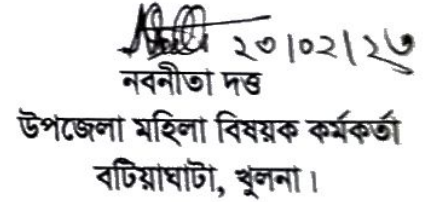 ২০|০২|২৬
নবনীতা দত্ত
উপজেলা মহিলা বিষয়ক কর্মকর্তা
বটিয়াঘাটা, খুলনা।